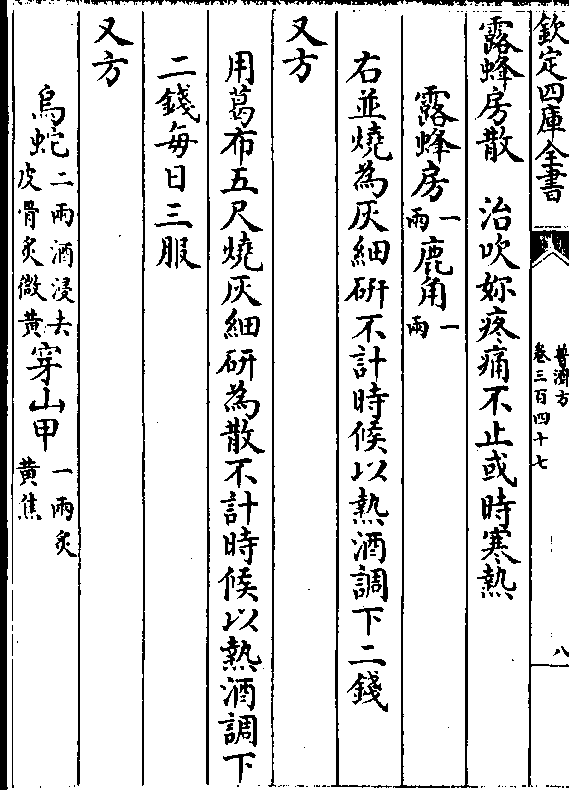 欽定四庫全書
普濟方
卷三百四十七
八
露蜂房散　治吹妳疼痛不止或時寒熱
露蜂房一兩鹿角一兩
右並燒為灰細研不計時候以熱酒調下二錢
又方
用葛布五尺燒灰細研為散不計時候以熱酒調下
二錢每日三服
又方
烏蛇二兩酒浸去皮骨炙微黃穿山甲一兩炙黃焦